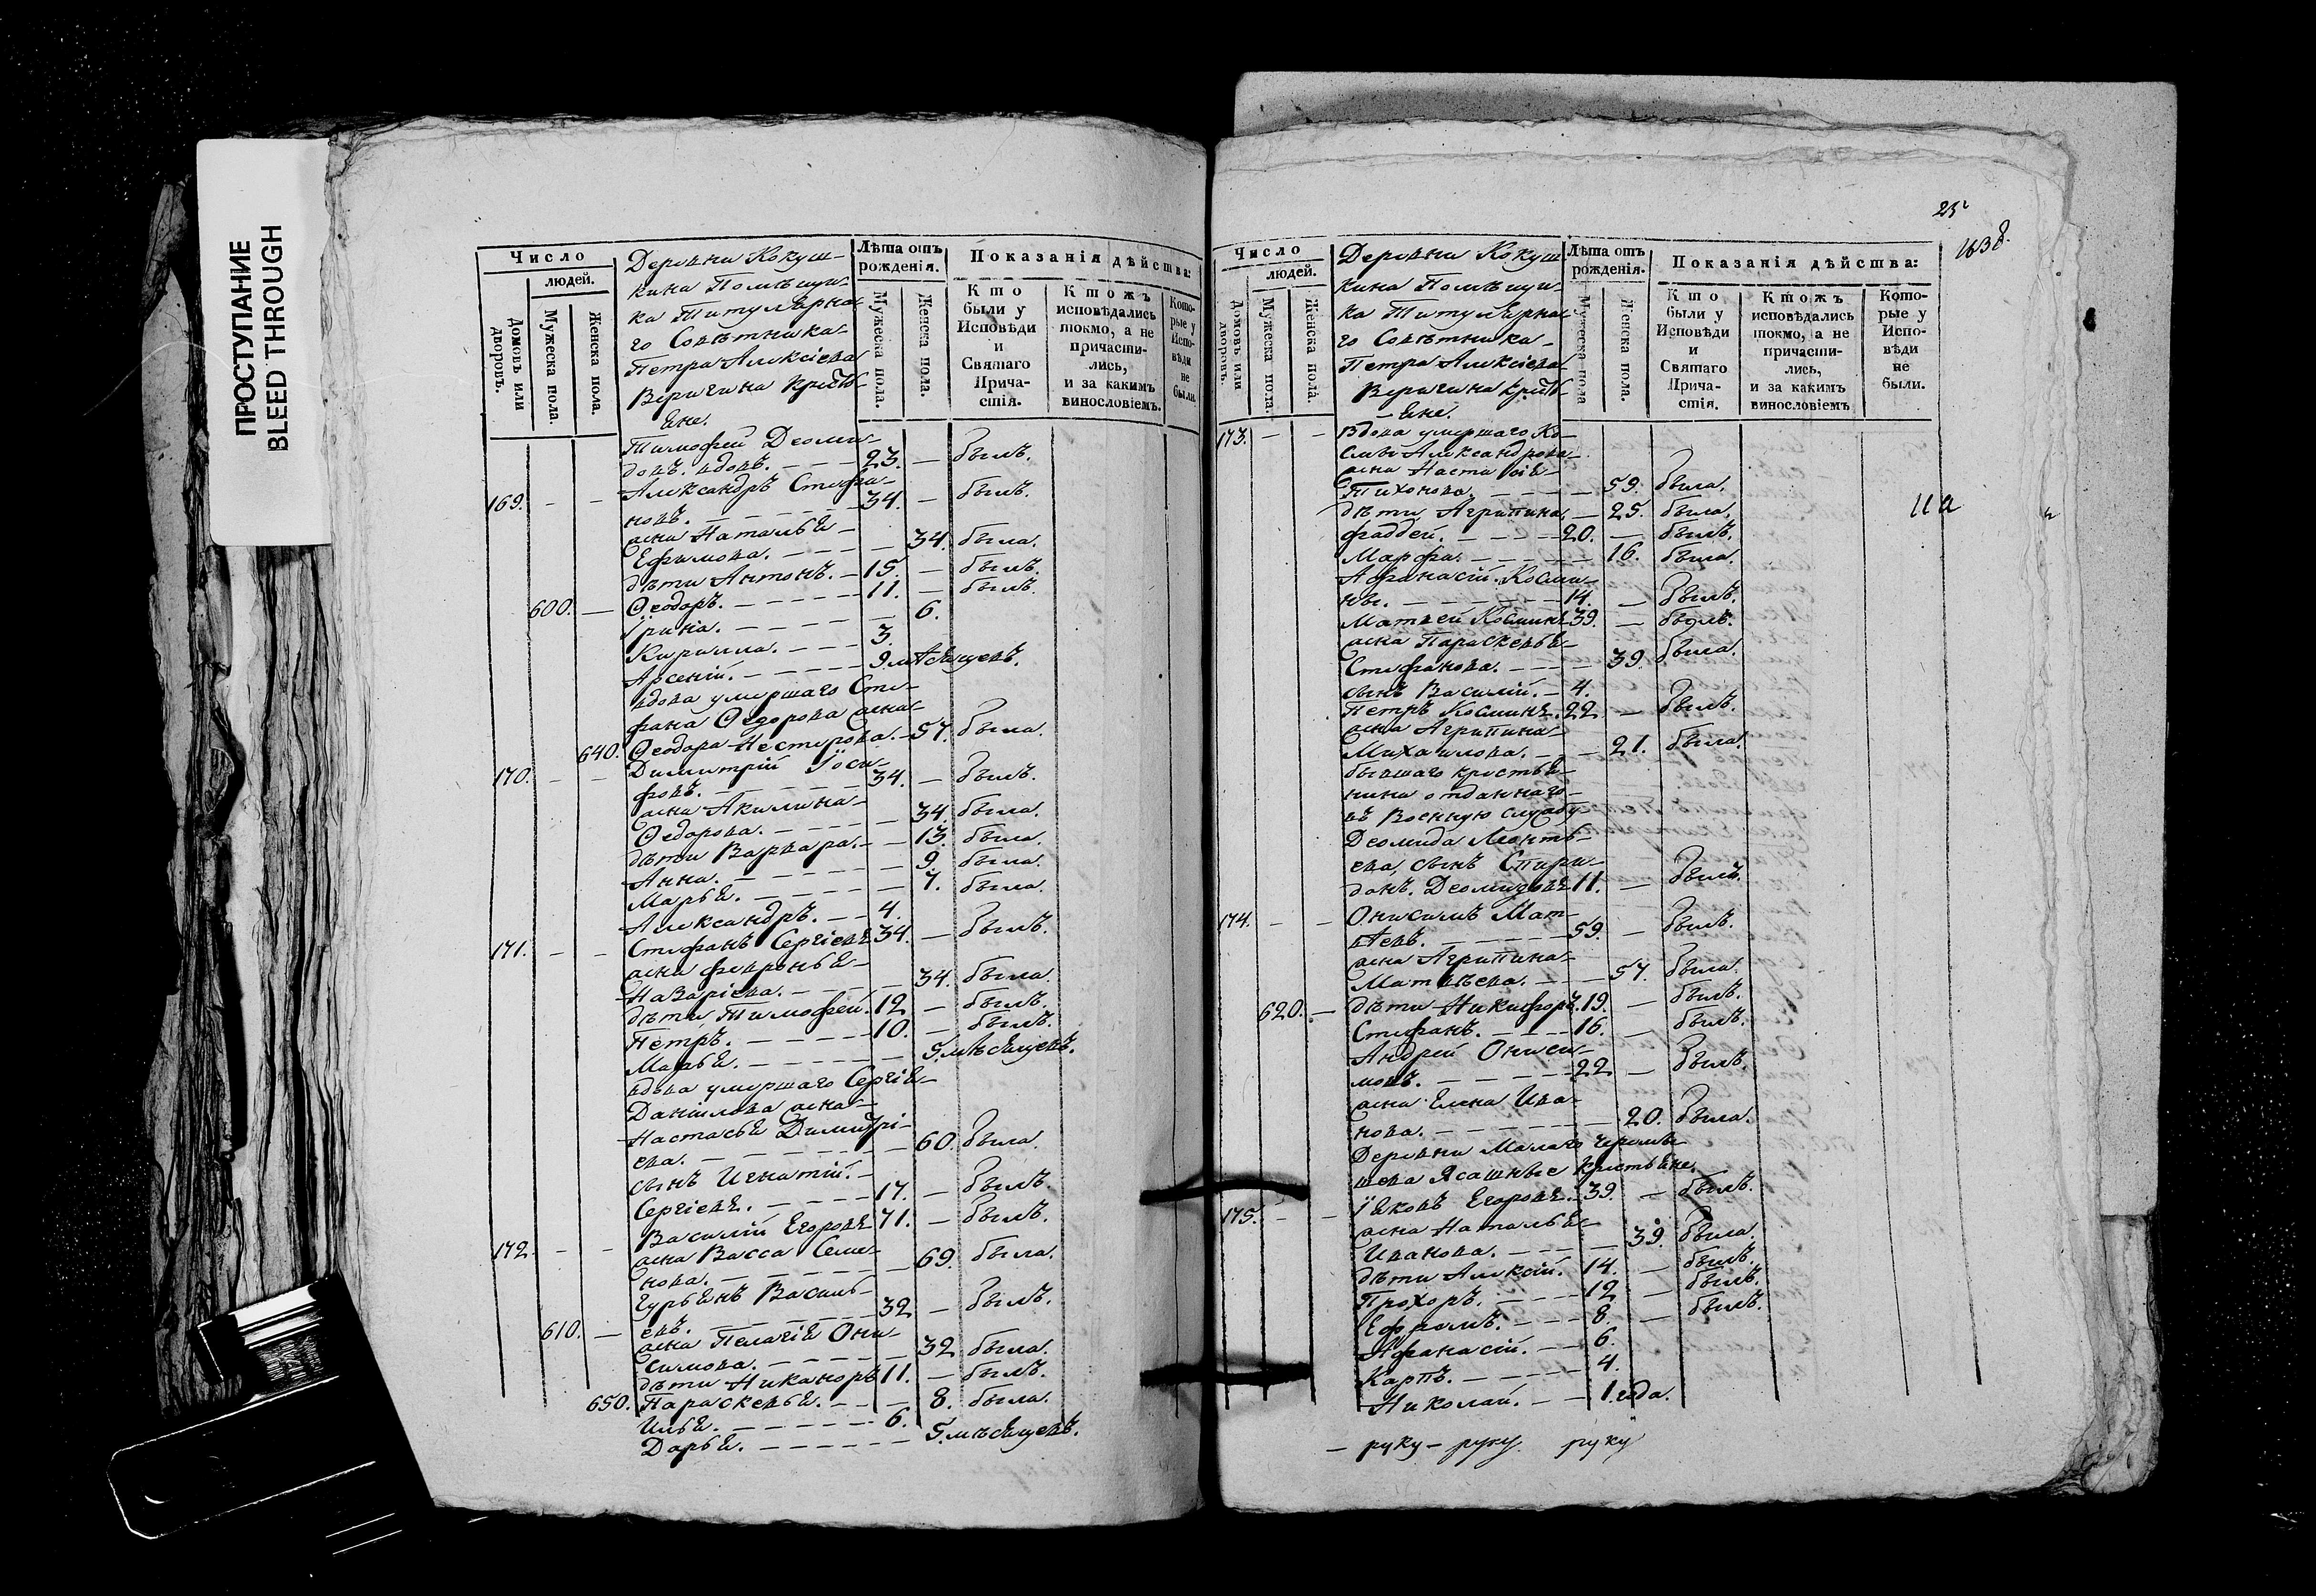 ПРОСТУПАНИЕ
BLEED THROUGH
Число
людей.
Домовъ или дворовъ.
Мужеска пола.
Женска пола.
Деревни Кокуш-
кина Помѣщи-
ка Титулярна-
го Совѣтника
Петра Алексіева
Веригина крестья-
яне.
Лѣта отъ рожденія.
Мужеска пола.
Женска пола.
Показанія дѣйства:
Кто были у Исповѣди и Святаго Причастія.
Ктожъ исповѣдались токмо, а не причастились, и за какимъ винословіемъ.
Которые у Исповѣди не были.
Тимофей Деоми-
довъ. вдовъ. 23. — былъ.
169. — — Александръ Стефа-
новъ. 34. — былъ.
жена Наталья
Ефимова. — 34. была.
дѣти Антонъ. 15. — былъ.
600. — Ѳеодоръ. 11. — былъ.
Ірина. — 6.
Кирилла. 3.
Арсеній. 9. мѣсяцевъ.
вдова умершаго Сте-
фана Ѳедорова жена
640. Ѳеодора Нестерова. — 57. была.
170. — — Димитрій Іоси-
фовъ. 34. — былъ.
жена Акилина
Ѳедорова. — 34. была.
дѣти Варвара. — 13. была.
Анна. — 9. была.
Марья. — 7. была.
Александръ. 4.
171. — — Стефанъ Сергіевъ 34. — былъ.
жена Февронья
Назаріева. — 34. была.
дѣти Тимофей. 12 — былъ.
Петръ. 10. — былъ.
Марья. — 5. мѣсяцевъ.
вдова умершаго Сергія
Данилова жена
Настасья Димитрі-
ева. — 60. была.
сынъ Игнатій
Сергіевъ. 17. — былъ.
172. — — Василій Егоровъ 71. — былъ.
жена Васса Семе-
нова. — 69. была.
Гурьянъ Василь-
610. — евъ. 32 — былъ.
жена Пелагія Они-
симова. — 32 была.
дѣти Никаноръ 11. — былъ.
650. Параскевья. — 8. была.
Илья. 6.
Дарья. — 5. мѣсяцевъ.
25
Число
людей.
Домовъ или дворовъ.
Мужеска пола.
Женска пола.
Деревни Кокуш-
кина Помѣщи-
ка Титулярна-
го Совѣтника
Петра Алексіева
Веригина крестья-
яне.
Лѣта отъ рожденія.
Мужеска пола
Женска пола.
Показанія дѣйства:
Кто были у Исповѣди и Святаго Причастія.
Ктожъ исповѣдались токмо, а не причастились, и за какимъ винословіемъ
Которые у Исповѣди не были.
173. — — Вдова умершаго Ко-
смы Александрова
жена Настасія
Тихонова. — 59. была.
дѣти Агрипина. — 25. была.
Фаддей. 20. — былъ.
Марфа. — 16. была.
Афанасій Косми-
ны. 14. — былъ.
Матвей Косминъ 39. — былъ.
жена Параскевья
Стефанова. — 39. была.
сынъ Василій. 4.
Петръ Косминъ. 22. — былъ.
жена Агрипина
Михаилова. — 21. была.
бывшаго крестья-
нина отданнаго
въ Военную службу
Деомида Леонть-
ева, сынъ Спири-
донъ. Деомидовъ 11. — былъ.
174. — — Онисимъ Мат-
вѣевъ. 59. — былъ.
жена Агрипина
Матвѣева. — 57. была.
620. — дѣти Никифоръ. 19. — былъ.
Стефанъ. 16. — былъ.
Андрей Ониси-
мовъ. 22 — былъ.
жена Елена Ива-
нова. — 20. была.
Деревни Малаго
Ясашные крестьяне.
175. — — Іяковъ Егоровъ. 39. — былъ.
жена Наталья
Иванова. — 39. была.
дѣти Алексій. 14. — былъ.
Прохоръ. 12 — былъ.
Ефремъ. 8. — былъ.
Афанасій. 6.
Карпъ. 4.
Николай. 1. года.
— руку — руку руку